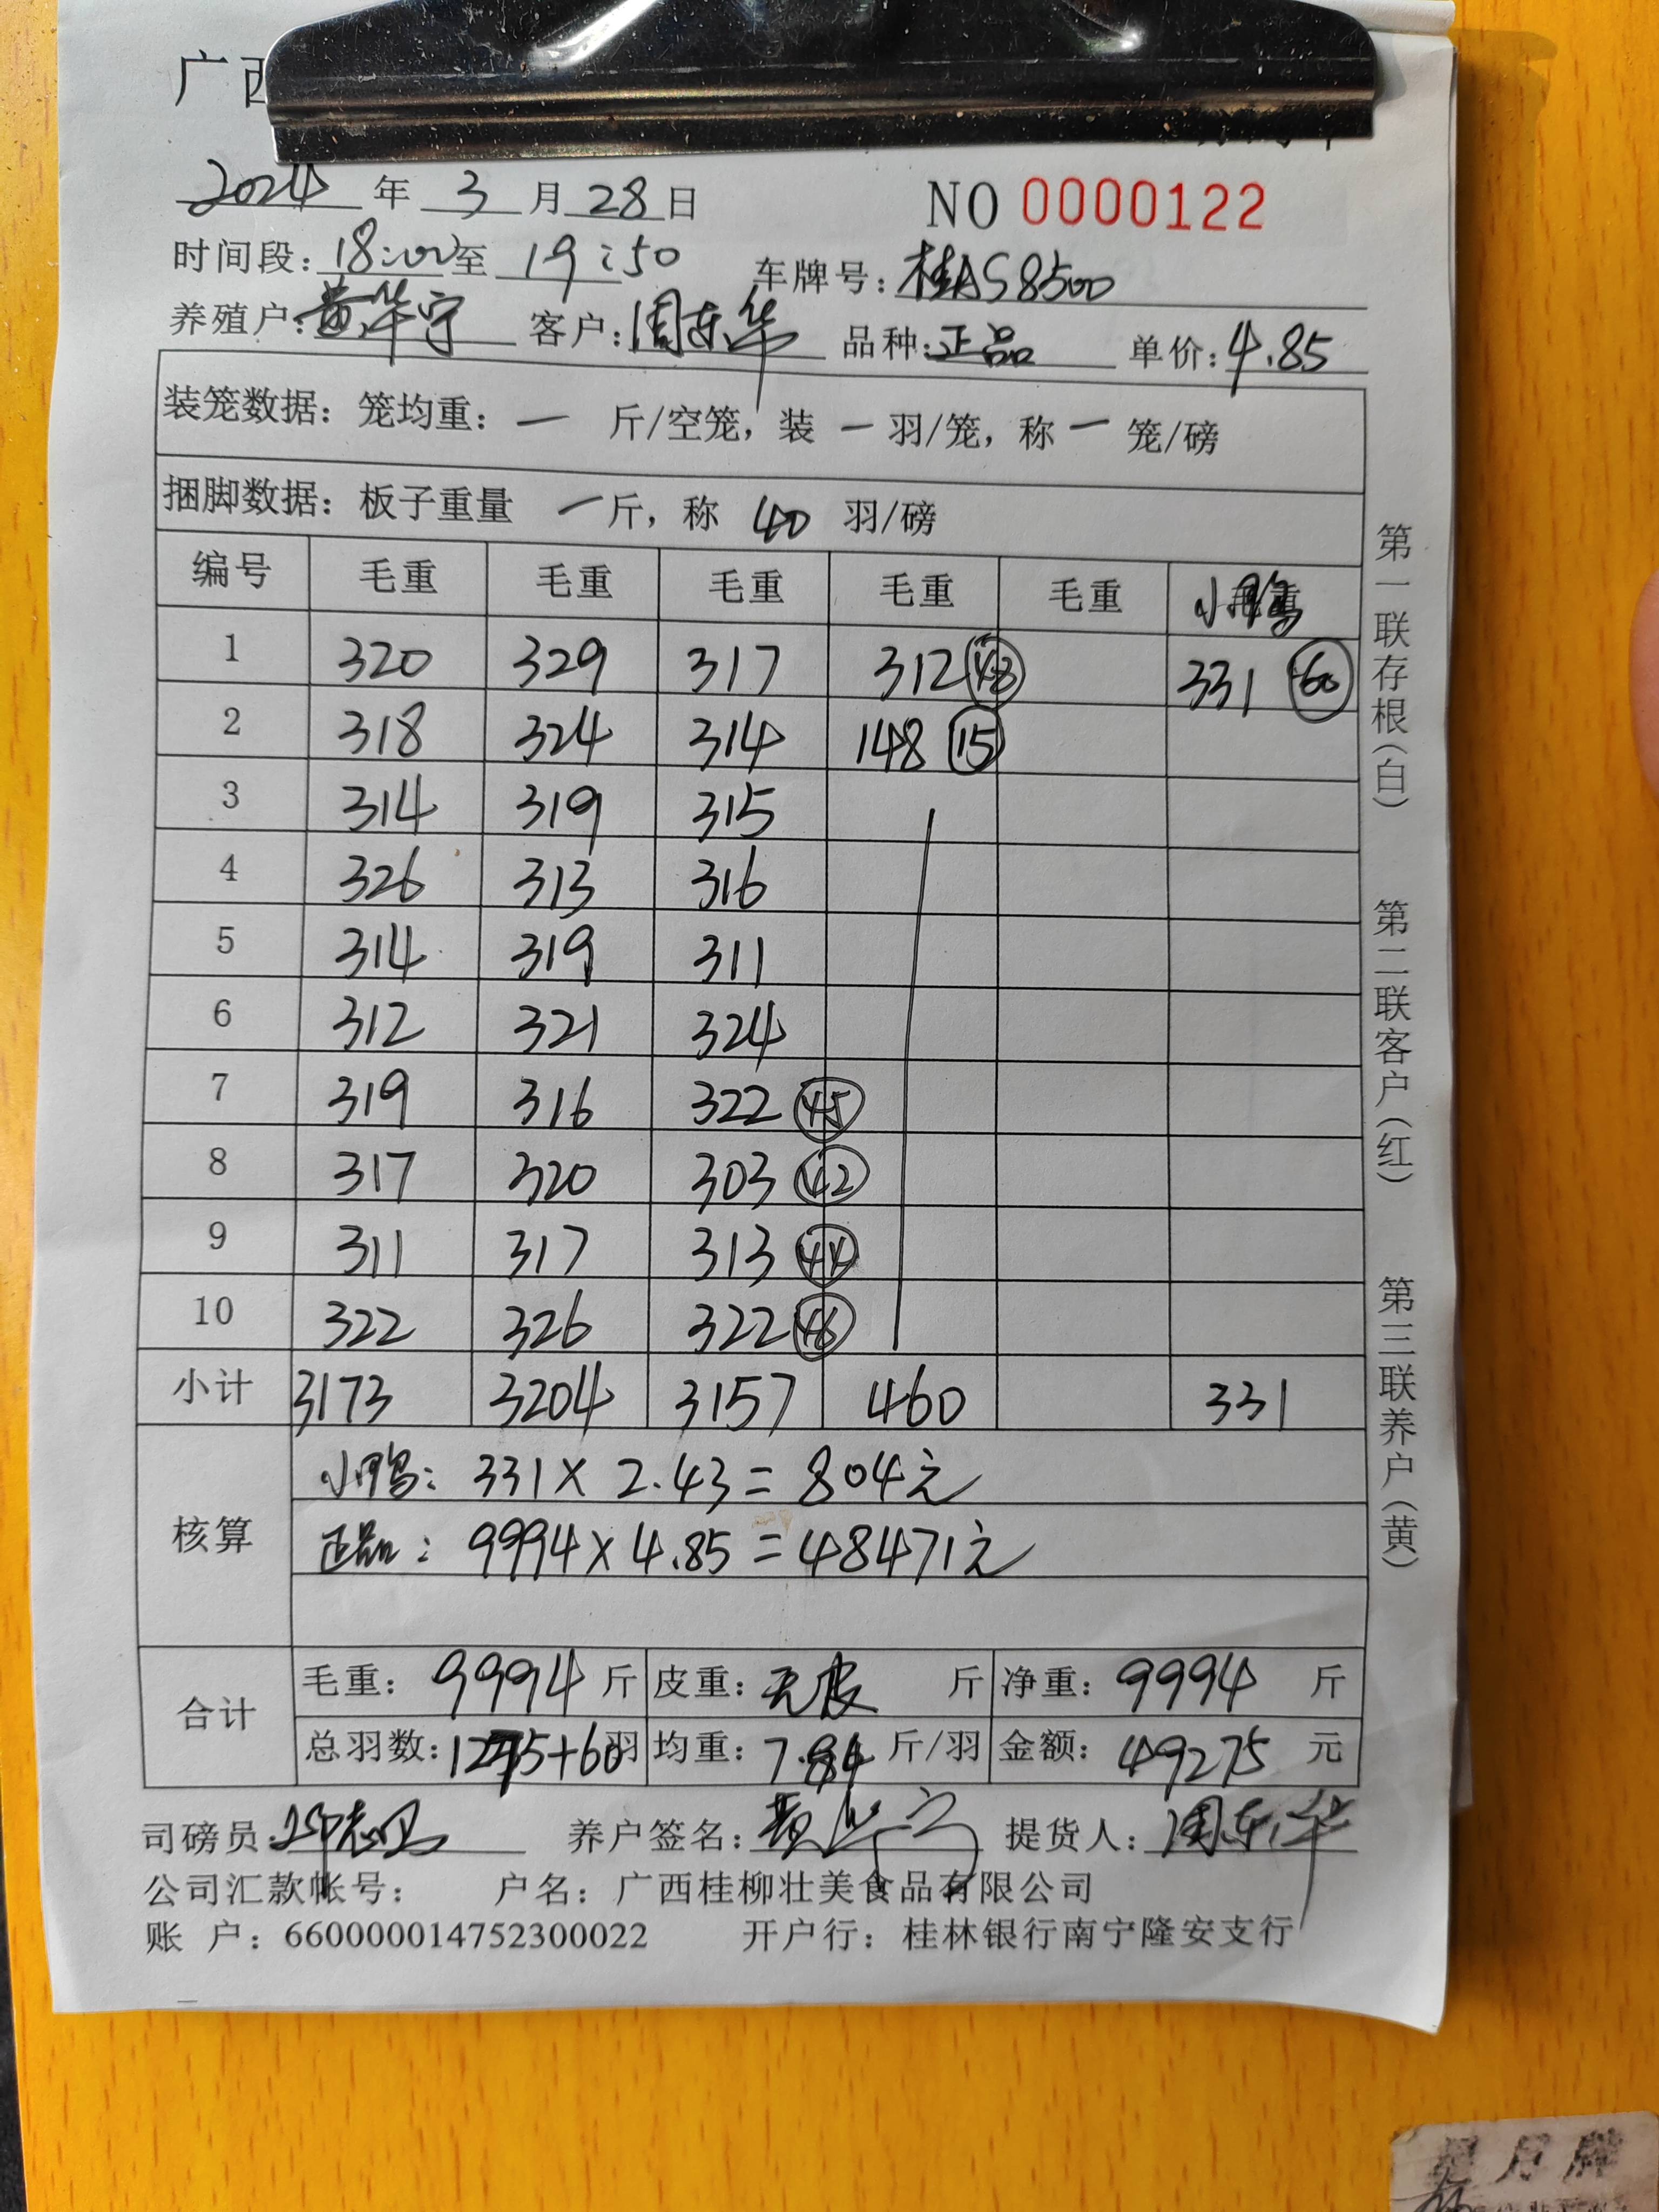 广西
2024年3月28日 NO 0000122
时间段：18:00至19:50 车牌号：桂AS8500
养殖户：黄华宁 客户：周东华 品种：正品 单价：4.85
装笼数据：笼均重：一 斤/空笼，装 一 羽/笼，称 一 笼/磅
捆脚数据：板子重量 一 斤，称 40 羽/磅
编号 毛重 毛重 毛重 毛重 毛重 小鸭
1 320 329 317 312 48 331 60
2 318 324 314 148 15
3 314 319 315
4 326 313 316
5 314 319 311
6 312 321 324
7 319 316 322 45
8 317 320 303 42
9 311 317 313 44
10 322 326 322 46
小计 3173 3204 3157 460 331
核算
小鸭：331×2.43=804元
正品：9994×4.85=48471元
合计
毛重：9994斤 皮重：无皮 斤 净重：9994 斤
总羽数：1275+60羽 均重：7.84 斤/羽 金额：49275 元
司磅员： 养户签名：黄华宁 提货人：周东华
公司汇款帐号： 户名：广西桂柳壮美食品有限公司
账 户：660000014752300022 开户行：桂林银行南宁隆安支行
第一联存根（白） 第二联客户（红） 第三联养户（黄）
星月牌